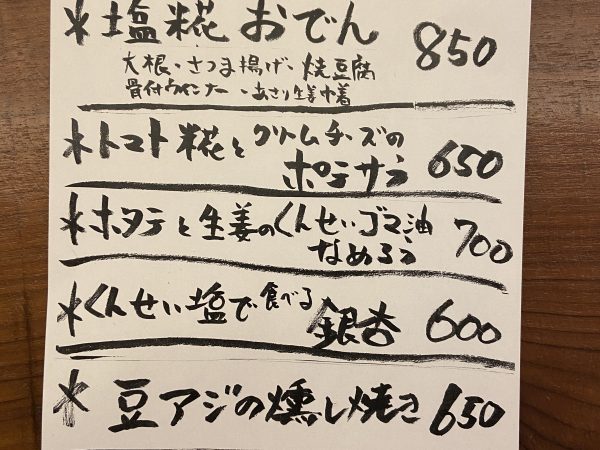 *塩糀おでん 850
大根・さつま揚げ・焼豆腐
骨付ウインナー・あさり生姜巾着
*トマト糀とクリームチーズの
ポテサラ 650
*ホタテと生姜のくんせいゴマ油
なめろう 700
*くんせい塩で食べる
銀杏 600
*豆アジの燻し焼き 650